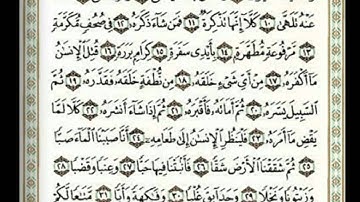 عَنْهُ تَلَهَّىٰ ۝١٠ كَلَّا إِنَّهَا تَذْكِرَةٌ ۝١١ فَمَن شَاءَ ذَكَرَهُ ۝١٢ فِي صُحُفٍ مُّكَرَّمَةٍ
۝١٣ مَّرْفُوعَةٍ مُّطَهَّرَةٍ ۝١٤ بِأَيْدِي سَفَرَةٍ ۝١٥ كِرَامٍ بَرَرَةٍ ۝١٦ قُتِلَ الْإِنسَانُ
مَا أَكْفَرَهُ ۝١٧ مِنْ أَيِّ شَيْءٍ خَلَقَهُ ۝١٨ مِن نُّطْفَةٍ خَلَقَهُ فَقَدَّرَهُ ۝١٩ ثُمَّ
السَّبِيلَ يَسَّرَهُ ۝٢٠ ثُمَّ أَمَاتَهُ فَأَقْبَرَهُ ۝٢١ ثُمَّ إِذَا شَاءَ أَنشَرَهُ ۝٢٢ كَلَّا لَمَّا
يَقْضِ مَا أَمَرَهُ ۝٢٣ فَلْيَنظُرِ الْإِنسَانُ إِلَىٰ طَعَامِهِ ۝٢٤ أَنَّا صَبَبْنَا الْمَاءَ صَبًّا
۝٢٥ ثُمَّ شَقَقْنَا الْأَرْضَ شَقًّا ۝٢٦ فَأَنبَتْنَا فِيهَا حَبًّا ۝٢٧ وَعِنَبًا وَقَضْبًا ۝٢٨
وَزَيْتُونًا وَنَخْلًا ۝٢٩ وَحَدَائِقَ غُلْبًا ۝٣٠ وَفَاكِهَةً وَأَبًّا ۝٣١ مَّتَاعًا لَّكُمْ